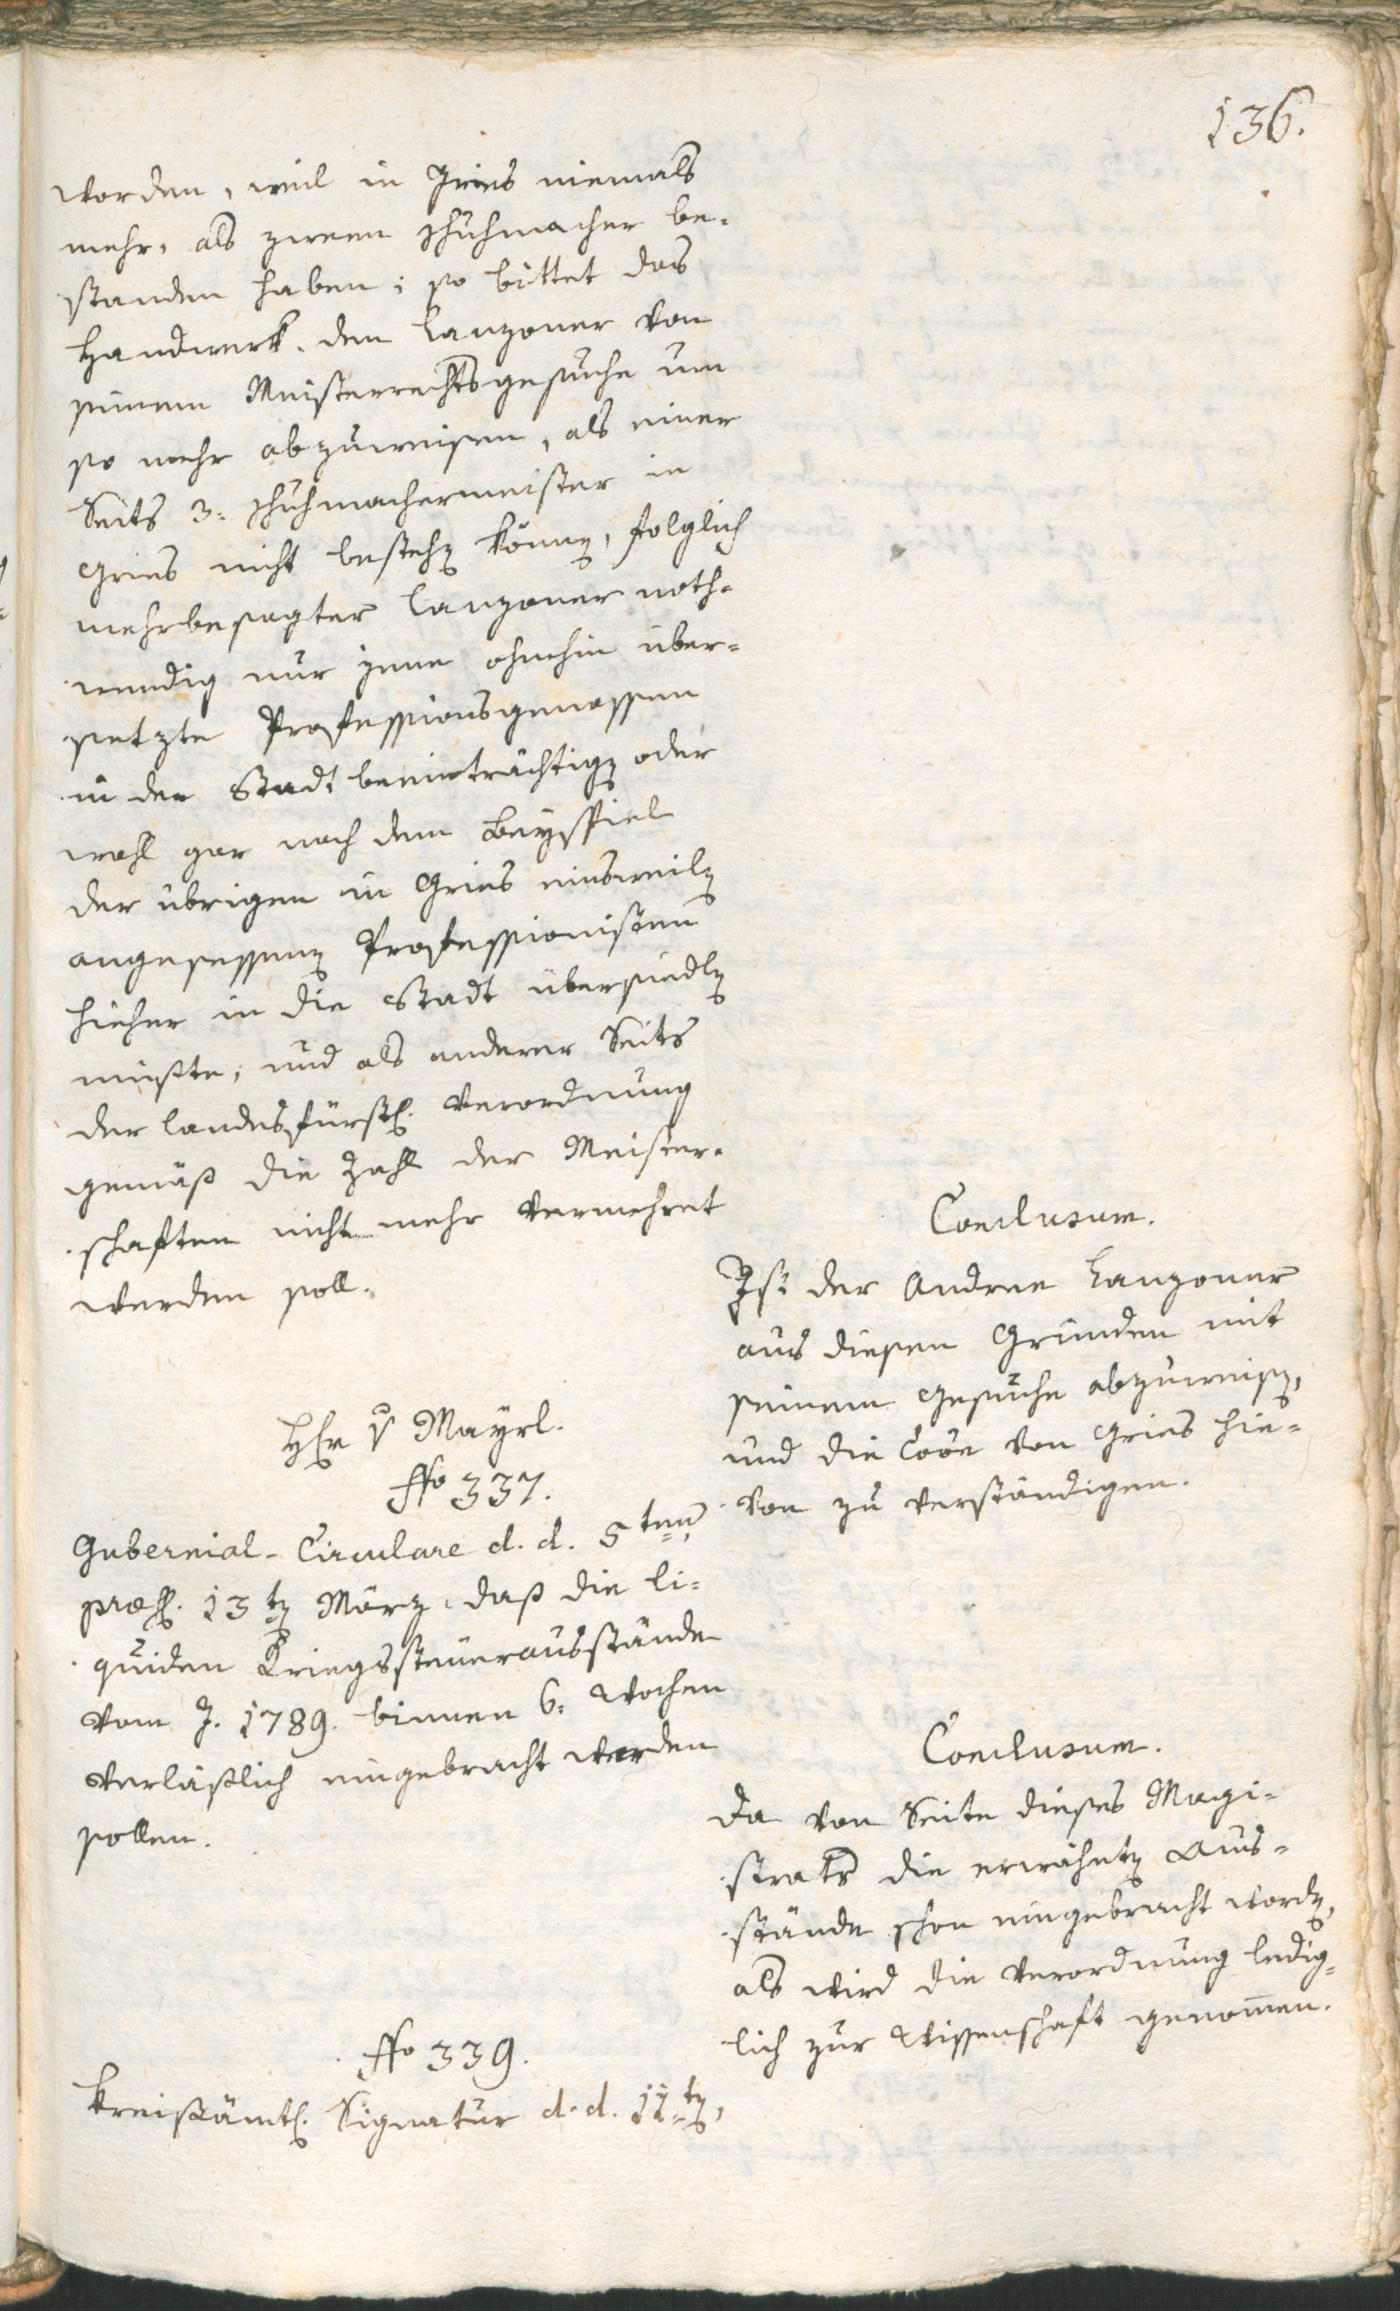 136.
worden, weil in Gries niemals
mehr, als zween Schuhmacher be-
standen haben; so bittet das
Handwerk, den Lanzoner von
seinem Meisterrechtsgesuche um
so mehr abzuweisen, als einer
Seits 3. Schuhmachermeister in
Gries nicht bestehen können, folglich
mehrbesagter Lanzoner noth-
wendig nur jene ohnehin über-
setzte Professionsgenossen
in der Stadt beeinträchtigen oder
wohl gar nach dem Beyspiel
der übrigen in Gries einsweilen
angesessenen Professionisten
hieher in die Stadt übersiedlen
müßte, und als anderer Seits
der landesfürstl. Verordnung
gemäß die Zahl der Meister-
schaften nicht mehr vermehret
werden soll.
Conclusum.
Ist der Andree Lanzoner
aus diesen Gründen mit
seinem Gesuche abzuweisen,
und die Coõn von Gries hie-
von zu verständigen.
Hr v Mayrl.
Nro 337.
Gubernial-Circulare d. d. 5ten,
præs. 13ten März, daß die li-
quiden Kriegssteuerausstände
vom J. 1789. binnen 6. Wochen
verläßlich eingebracht werden
sollen.
Conclusum.
Da von Seite dieses Magi-
strats die erwähnten Aus-
stände schon eingebracht worden,
als wird die Verordnung ledig-
lich zur Wissenschaft genom̅en.
Nro 339.
Kreisämtl. Signatur d. d. 11ten,